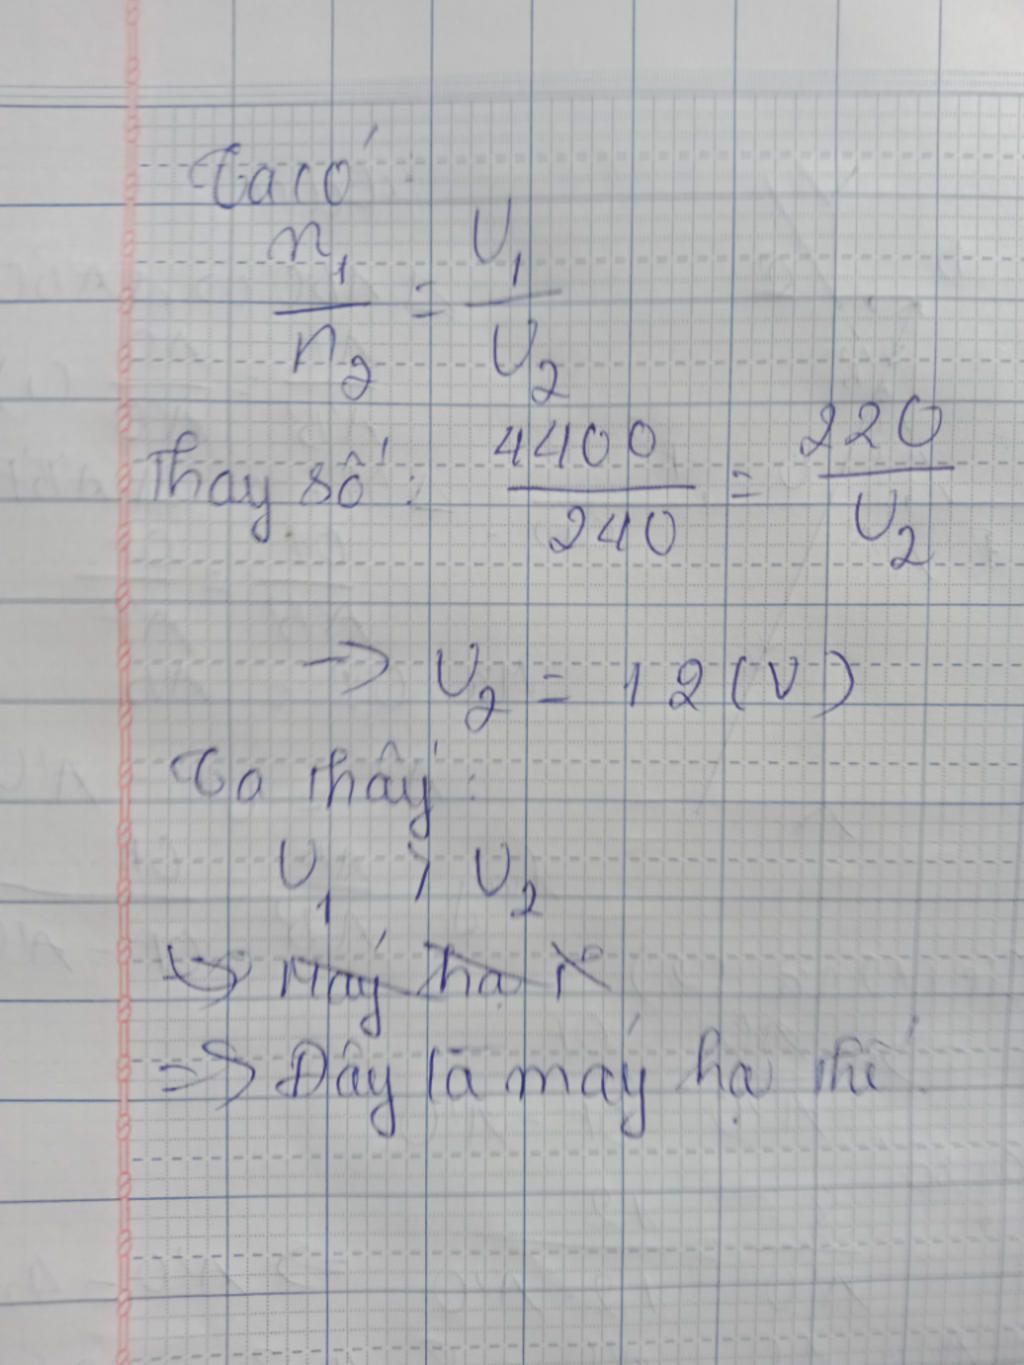 Ta có:
n₁/n₂ = U₁/U₂
Thay số: 4400/240 = 220/U₂
→ U₂ = 12 (V)
Ta thấy:
U₁ > U₂
=> Máy hạ
=> Đây là máy hạ thế.